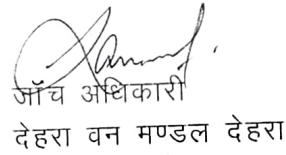 जाँच अधिकारी
देहरा वन मण्डल देहरा